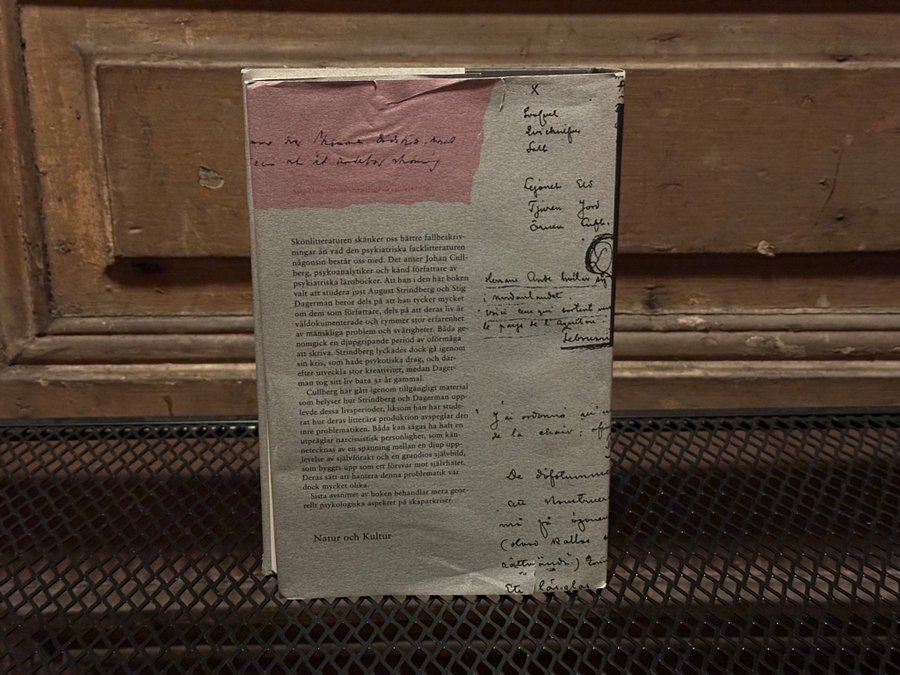 X
Svafvel
Qvicksilfver
Salt
Lejonet Eld
Tjuren Jord
Örnen Luft.
Skönlitteraturen skänker oss bättre fallbeskriv-
ningar än vad den psykiatriska facklitteraturen
någonsin består oss med. Det anser Johan Cull-
berg, psykoanalytiker och känd författare av
psykiatriska läroböcker. Att han i den här boken
valt att studera just August Strindberg och Stig
Dagerman beror dels på att han tycker mycket
om dem som författare, dels på att deras liv är
väldokumenterade och rymmer stor erfarenhet
av mänskliga problem och svårigheter. Båda ge-
nomgick en djupgripande period av oförmåga
att skriva. Strindberg lyckades dock gå igenom
sin kris, som hade psykotiska drag, och där-
efter utveckla stor kreativitet, medan Dager-
man tog sitt liv bara 31 år gammal.
Cullberg har gått igenom tillgängligt material
som belyser hur Strindberg och Dagerman upp-
levde dessa livsperioder, liksom han har stude-
rat hur deras litterära produktion avspeglar den
inre problematiken. Båda kan sägas ha haft en
utpräglat narcissistisk personlighet, som kän-
netecknas av en spänning mellan en djup upp-
levelse av självförakt och en grandios självbild,
som byggts upp som ett försvar mot självhatet.
Deras sätt att hantera denna problematik var
dock mycket olika.
Sista avsnittet av boken behandlar mera gene-
rellt psykologiska aspekter på skaparkriser.
Natur och Kultur
i nordanlandet
J'ai ordonné
de la chair:
De